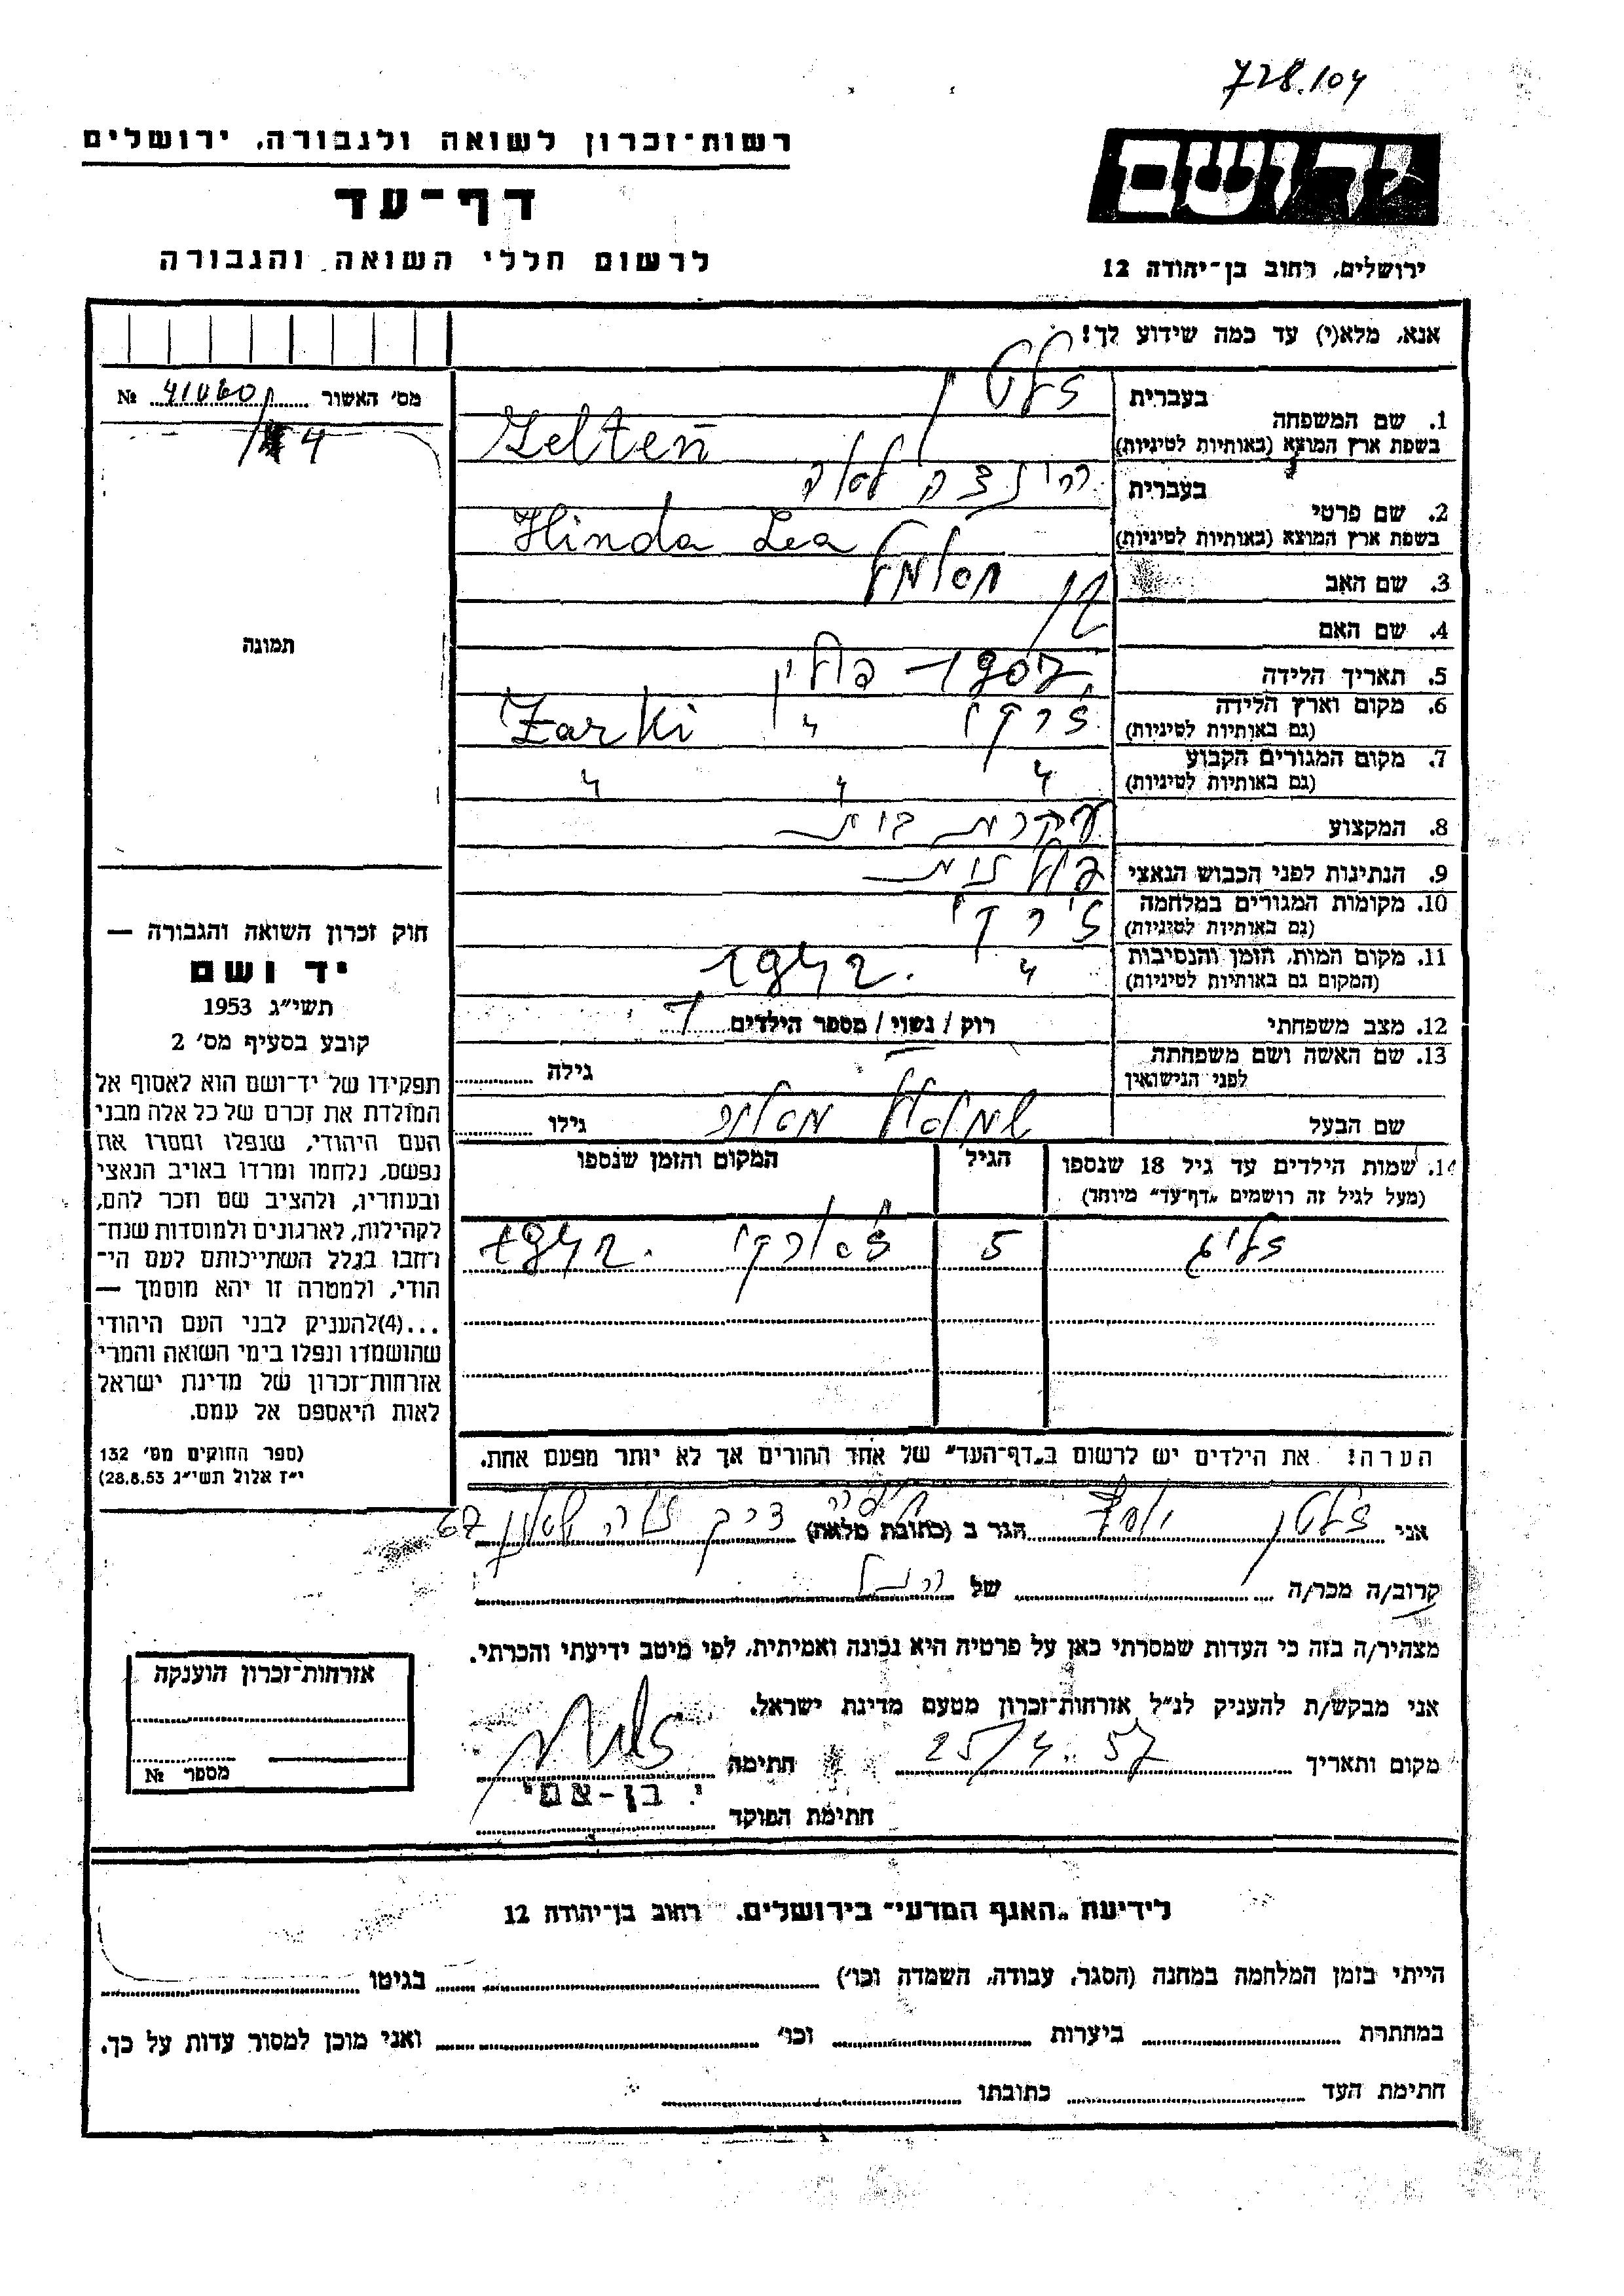 728.104
רשות־זכרון לשואה ולגבורה, ירושלים
דף־עד
לרשום חללי השואה והגבורה
יד ושם
ירושלים, רחוב בן־יהודה 12
אנא, מלא(י) עד כמה שידוע לך!
מס׳ האשור № 410601
/4
תמונה
1. שם המשפחה
בעברית זלטן
בשפת ארץ המוצא (באותיות לטיניות) Zelten
2. שם פרטי
בעברית הינדה לאה
בשפת ארץ המוצא (באותיות לטיניות) Hinda Lea
3. שם האב
4. שם האם
5. תאריך הלידה 1907 פולין
6. מקום וארץ הלידה ז׳רקי " Zarki
(גם באותיות לטיניות)
7. מקום המגורים הקבוע " " "
(גם באותיות לטיניות)
8. המקצוע עקרת בית
9. הנתינות לפני הכבוש הנאצי פולנית
10. מקומות המגורים במלחמה ז׳רקי
(גם באותיות לטיניות)
11. מקום המות, הזמן והנסיבות " 1942.
(המקום גם באותיות לטיניות)
12. מצב משפחתי רוק / נשוי / מספר הילדים 1
13. שם האשה ושם משפחתה
לפני הנישואין
גילה
שם הבעל שמואל
גילו
14. שמות הילדים עד גיל 18 שנספו הגיל המקום והזמן שנספו
(מעל לגיל זה רושמים „דף־עד״ מיוחד)
זליג 5 ז׳ארקי 1942.
הערה! את הילדים יש לרשום ב„דף־העד״ של אחד ההורים אך לא יותר מפעם אחת.
חוק זכרון השואה והגבורה —
יד ושם
תשי״ג 1953
קובע בסעיף מס׳ 2
תפקידו של יד־ושם הוא לאסוף אל
המולדת את זכרם של כל אלה מבני
העם היהודי, שנפלו ומסרו את
נפשם, נלחמו ומרדו באויב הנאצי
ובעוזריו, ולהציב שם וזכר להם,
לקהילות, לארגונים ולמוסדות שנח־
רחבו בגלל השתייכותם לעם הי־
הודי, ולמטרה זו יהא מוסמך —
...(4)להעניק לבני העם היהודי
שהושמדו ונפלו בימי השואה והמרי
אזרחות־זכרון של מדינת ישראל
לאות היאספם אל עמם.
(ספר החוקים מס׳ 132
י״ז אלול תשי״ג 28.8.53)
אני זלטן הגר ב (כתובת מלאה) חיפה 67
קרוב/ה מכר/ה של
מצהיר/ה בזה כי העדות שמסרתי כאן על פרטיה היא נכונה ואמיתית, לפי מיטב ידיעתי והכרתי.
אני מבקש/ת להעניק לנ״ל אזרחות־זכרון מטעם מדינת ישראל.
מקום ותאריך 25/4.57 חתימה
י. בן-עמי
חתימת הפוקד
אזרחות־זכרון הוענקה
מספר №
לידיעת „האגף המדעי״ בירושלים, רחוב בן־יהודה 12
הייתי בזמן המלחמה במחנה (הסגר, עבודה, השמדה וכו׳) בגיטו
במחתרת ביערות וכו׳ ואני מוכן למסור עדות על כך.
חתימת העד כתובתו